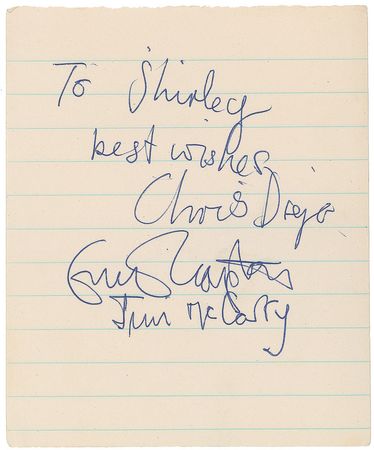 To Shirley
best wishes
Chris Dreja
Eric Clapton
Jim McCarty